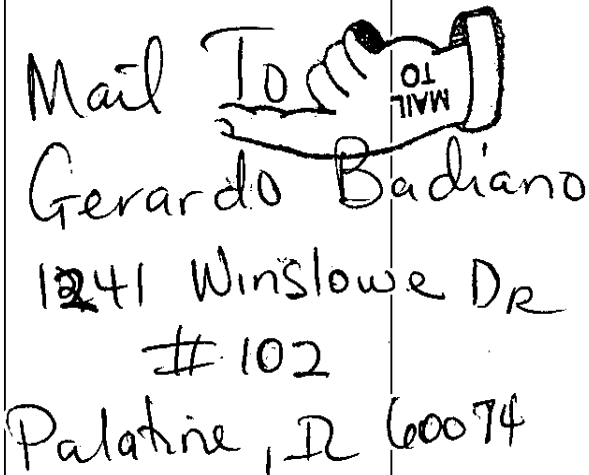 Mail To
MAIL
TO
Gerardo Badiano
1241 Winslowe DR
# 102
Palatine, IL 60074